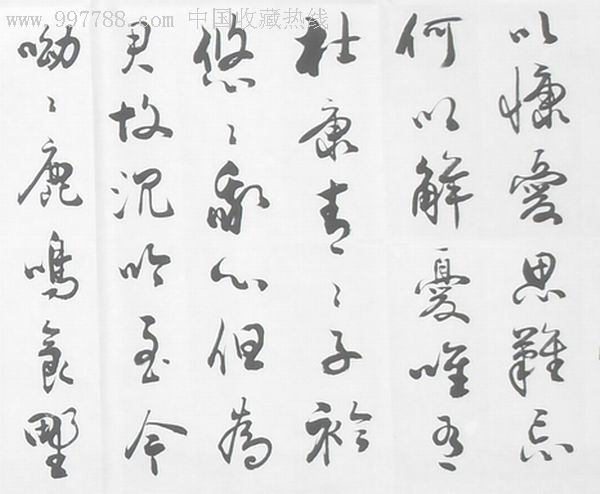 www.997788.com 中国收藏热线
以慷憂思難忘
何以解憂唯有
杜康青〻子衿
悠〻我心但為
君故沉吟至今
呦〻鹿鳴食野